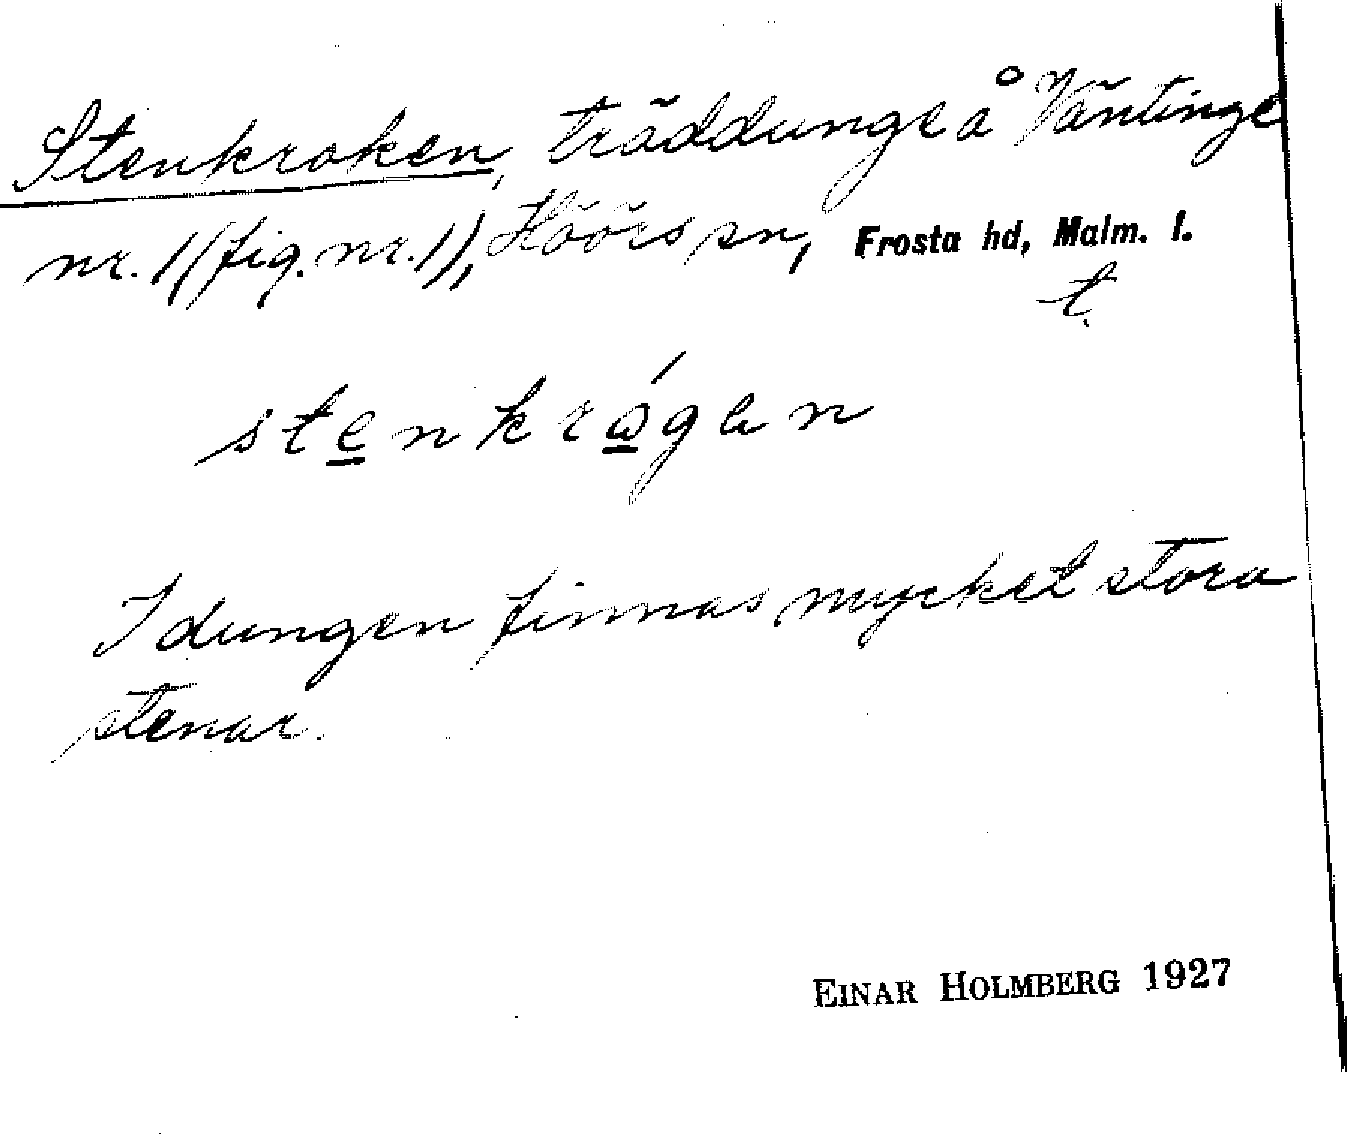 Stenkroken, träddunge å Väntinge
nr. 1 (fig. nr. 1), Höörs sn, Frosta hd, Malm. l.
t.
stenkrógən
I dungen finnas mycket stora
stenar.
EINAR HOLMBERG 1927